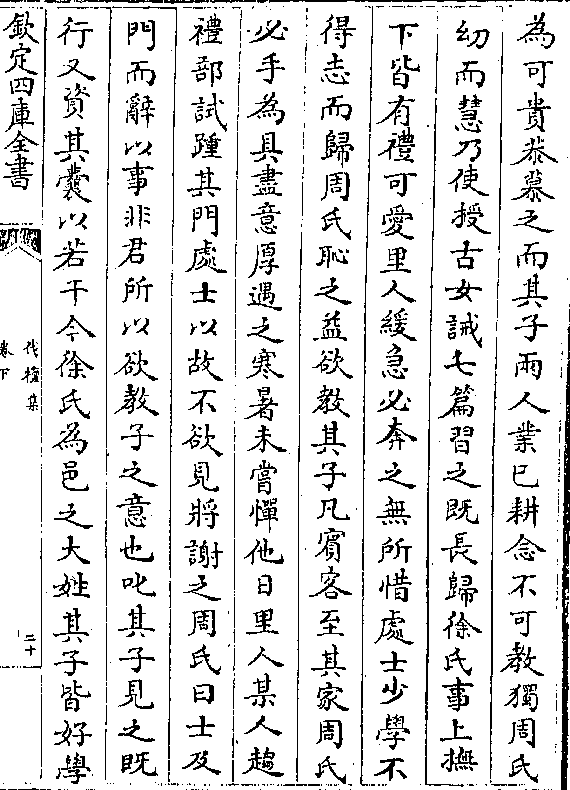 為可貴恭慕之而其子兩人業已耕念不可教獨周氏
幼而慧乃使授古女誡七篇習之既長歸徐氏事上撫
下皆有禮可愛里人緩急必奔之無所惜處士少學不
得志而歸周氏恥之益欲教其子凡賓客至其家周氏
必手為具盡意厚遇之寒暑未嘗憚他日里人某人趨
禮部試踵其門處士以故不欲見將謝之周氏曰士及
門而辭以事非君所以欲教子之意也叱其子見之既
行又資其囊以若干今徐氏為邑之大姓其子皆好學
欽定四庫全書
伐檀集
卷下
二十